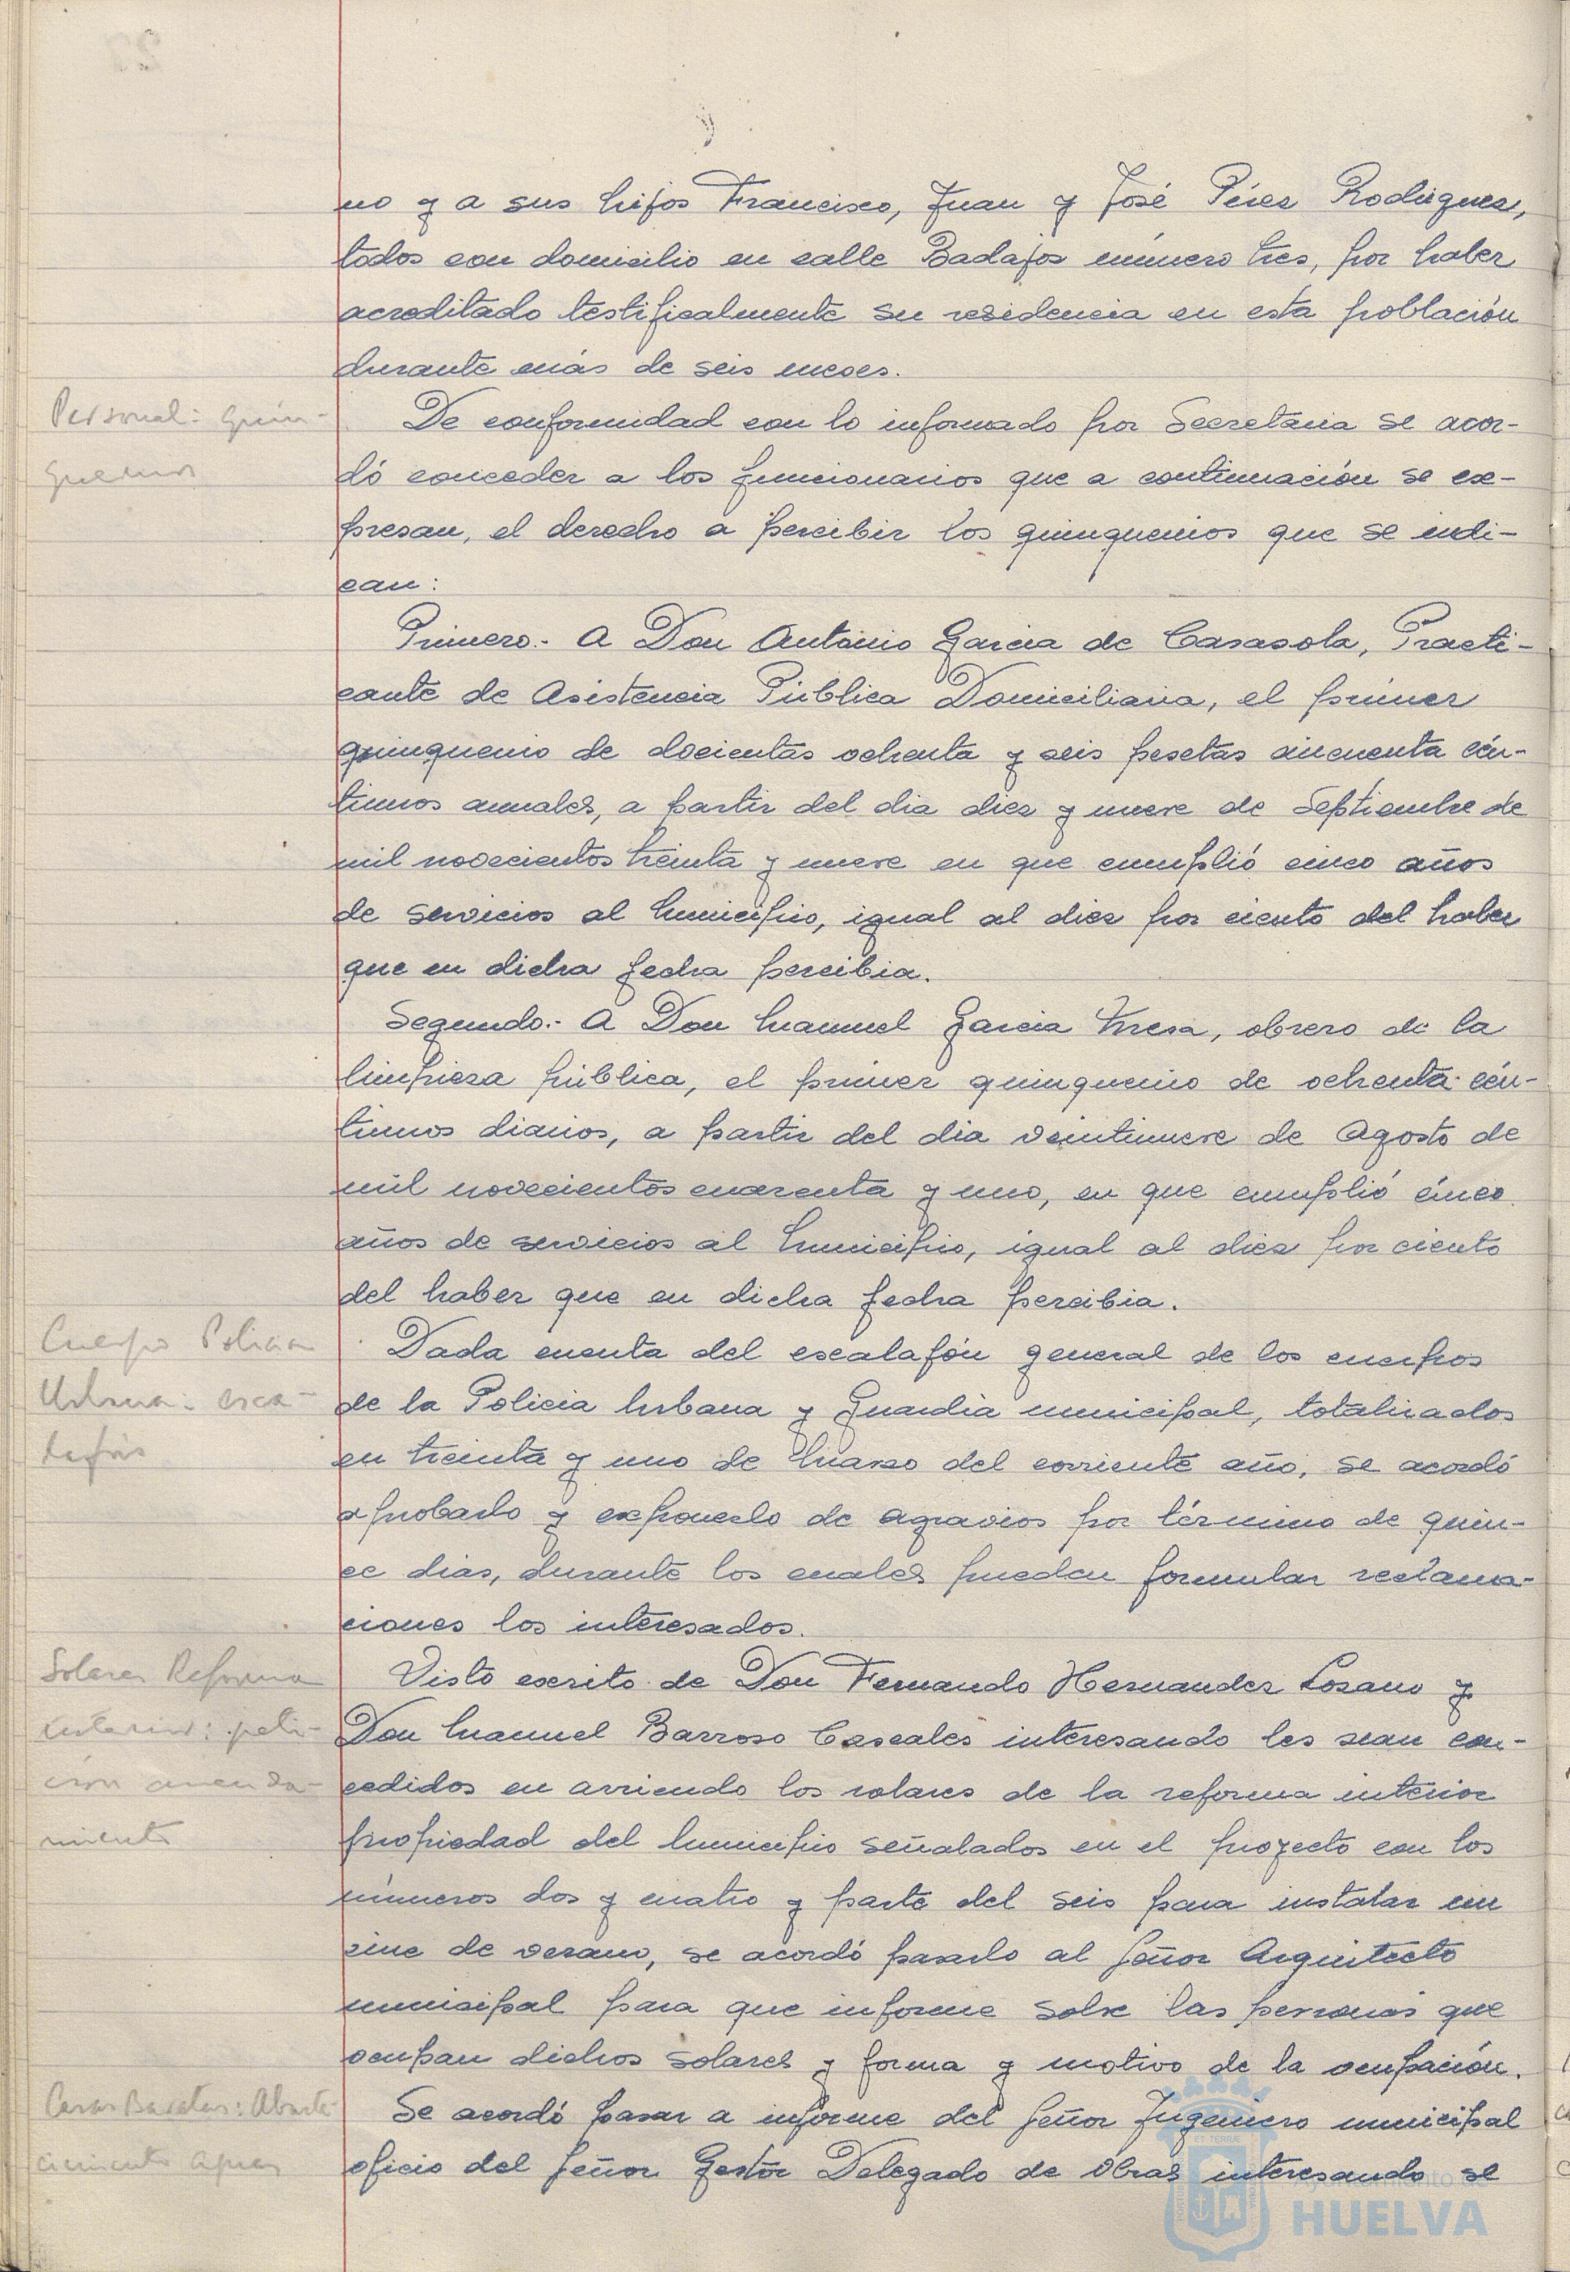 no y a sus hijos Francisco, Juan y José Pérez Rodriguez,
todos con domicilio en calle Badajos número tres, por haber
acreditado testificalmente su residencia en esta población
durante más de seis meses.
Personal: Quin-
quenios
De conformidad con lo informado por Secretaria se acor-
dó conceder a los funcionarios que a continuación se ex-
presan, el derecho a percibir los quinquenios que se indi-
can:
Primero.- A Don Antonio Garcia de Casasola, Practi-
cante de Asistencia Pública Domiciliaria, el primer
quinquenio de docientas ochenta y seis pesetas cincuenta cén-
timos anuales, a partir del dia diez y nueve de Septiembre de
mil novecientos treinta y nueve en que cumplió cinco años
de servicios al Municipio, igual al diez por ciento del haber
que en dicha fecha percibia.
Segundo.- A Don Manuel Garcia Mesa, obrero de la
limpieza pública, el primer quinquenio de ochenta cén-
timos diarios, a partir del dia veintinueve de Agosto de
mil novecientos cuarenta y uno, en que cumplió cinco
años de servicios al Municipio, igual al diez por ciento
del haber que en dicha fecha percibia.
Cuerpo Policia
Urbana: esca-
lafón
Dada cuenta del escalafón general de los cuerpos
de la Policia Urbana y Guardia municipal, totalizados
en treinta y uno de Marzo del corriente año, se acordó
aprobarlo y exponerlo de agravios por término de quin-
ce dias, durante los cuales pueden formular reclama-
ciones los interesados.
Solares Reforma
interior: peti-
ción arrenda-
miento
Visto escrito de Don Fernando Hernandez Lozano y
Don Manuel Barroso Cascales interesando les sean con-
cedidos en arriendo los solares de la reforma interior
propiedad del Municipio señalados en el proyecto con los
números dos y cuatro y parte del seis para instalar un
cine de verano, se acordó pasarlo al Señor Arquitecto
municipal para que informe sobre las personas que
ocupan dichos solares y forma y motivo de la ocupación.
Casas Baratas: Abaste-
cimiento Aguas
Se acordó pasar a informe del Señor Ingeniero municipal
oficio del Señor Gestor Delegado de Obras interesando se
Ayuntamiento de
HUELVA